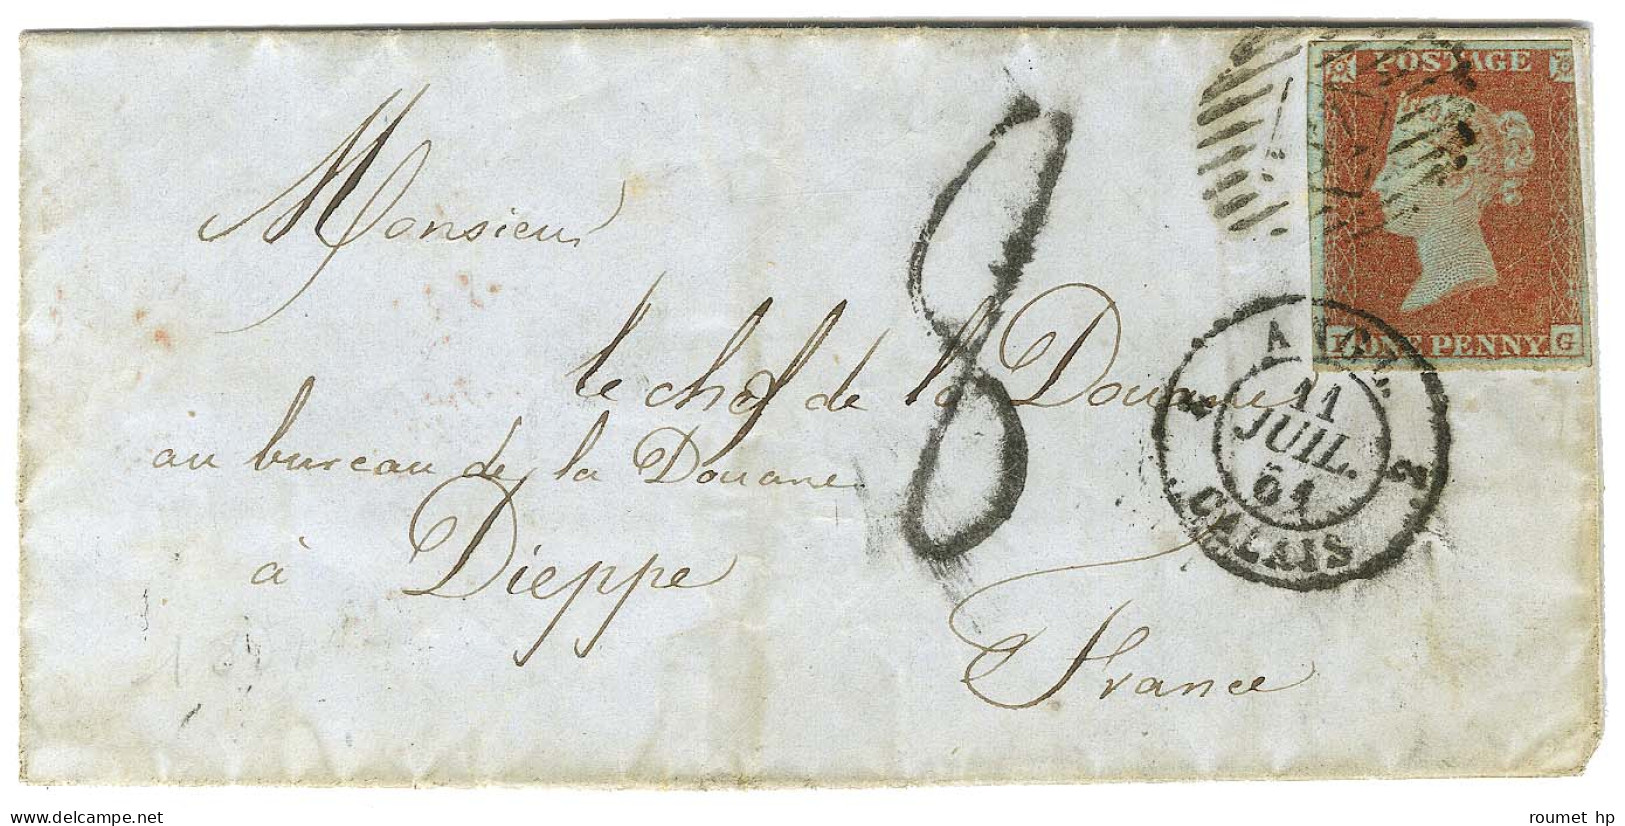 POSTAGE
ONE PENNY.
G
Monsieur
8
le chef de la Douane
au bureau de la Douane
à Dieppe
France
ANGL.
2 2
11
JUIL.
51
CALAIS
roumet hp